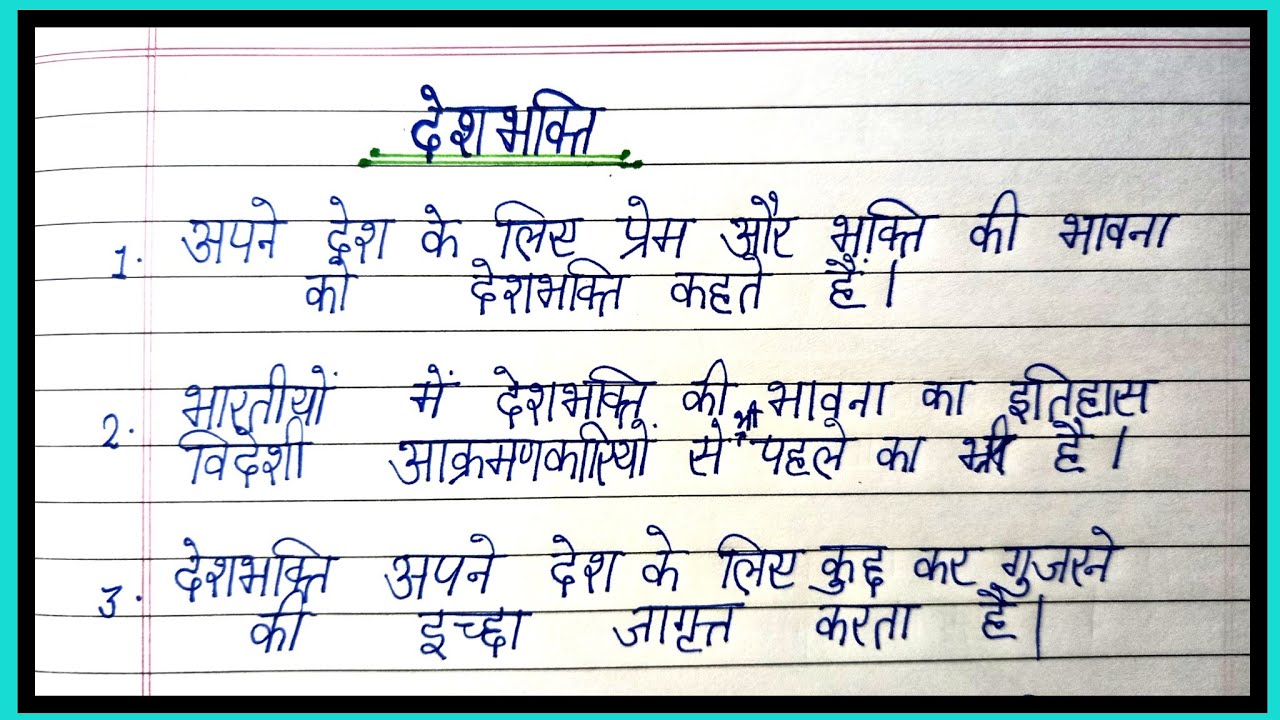 देशभक्ति
1. अपने देश के लिए प्रेम और भक्ति की भावना
को देशभक्ति कहते हैं।
2. भारतीयों में देशभक्ति की भावना का इतिहास
विदेशी आक्रमणकारियों से भी पहले का है।
3. देशभक्ति अपने देश के लिए कुछ कर गुजरने
की इच्छा जागृत्त करता है।